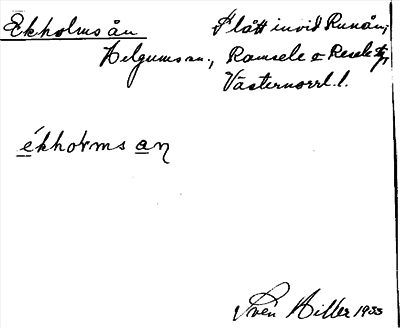 Ekholmsån Slått invid Runån,
Helgums sn., Ramsele o Resele tg,
Västernorrl. l.
ékholms aη
Sven Hiller 1933